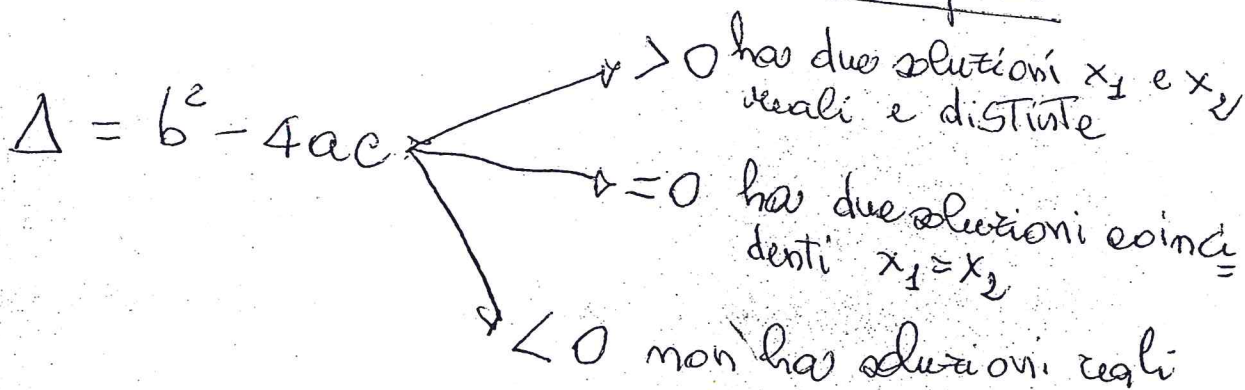 > 0 ha due soluzioni x₁ e x₂
reali e distinte
Δ = b² - 4ac
= 0 ha due soluzioni coinci=
denti x₁ = x₂
< 0 non ha soluzioni reali